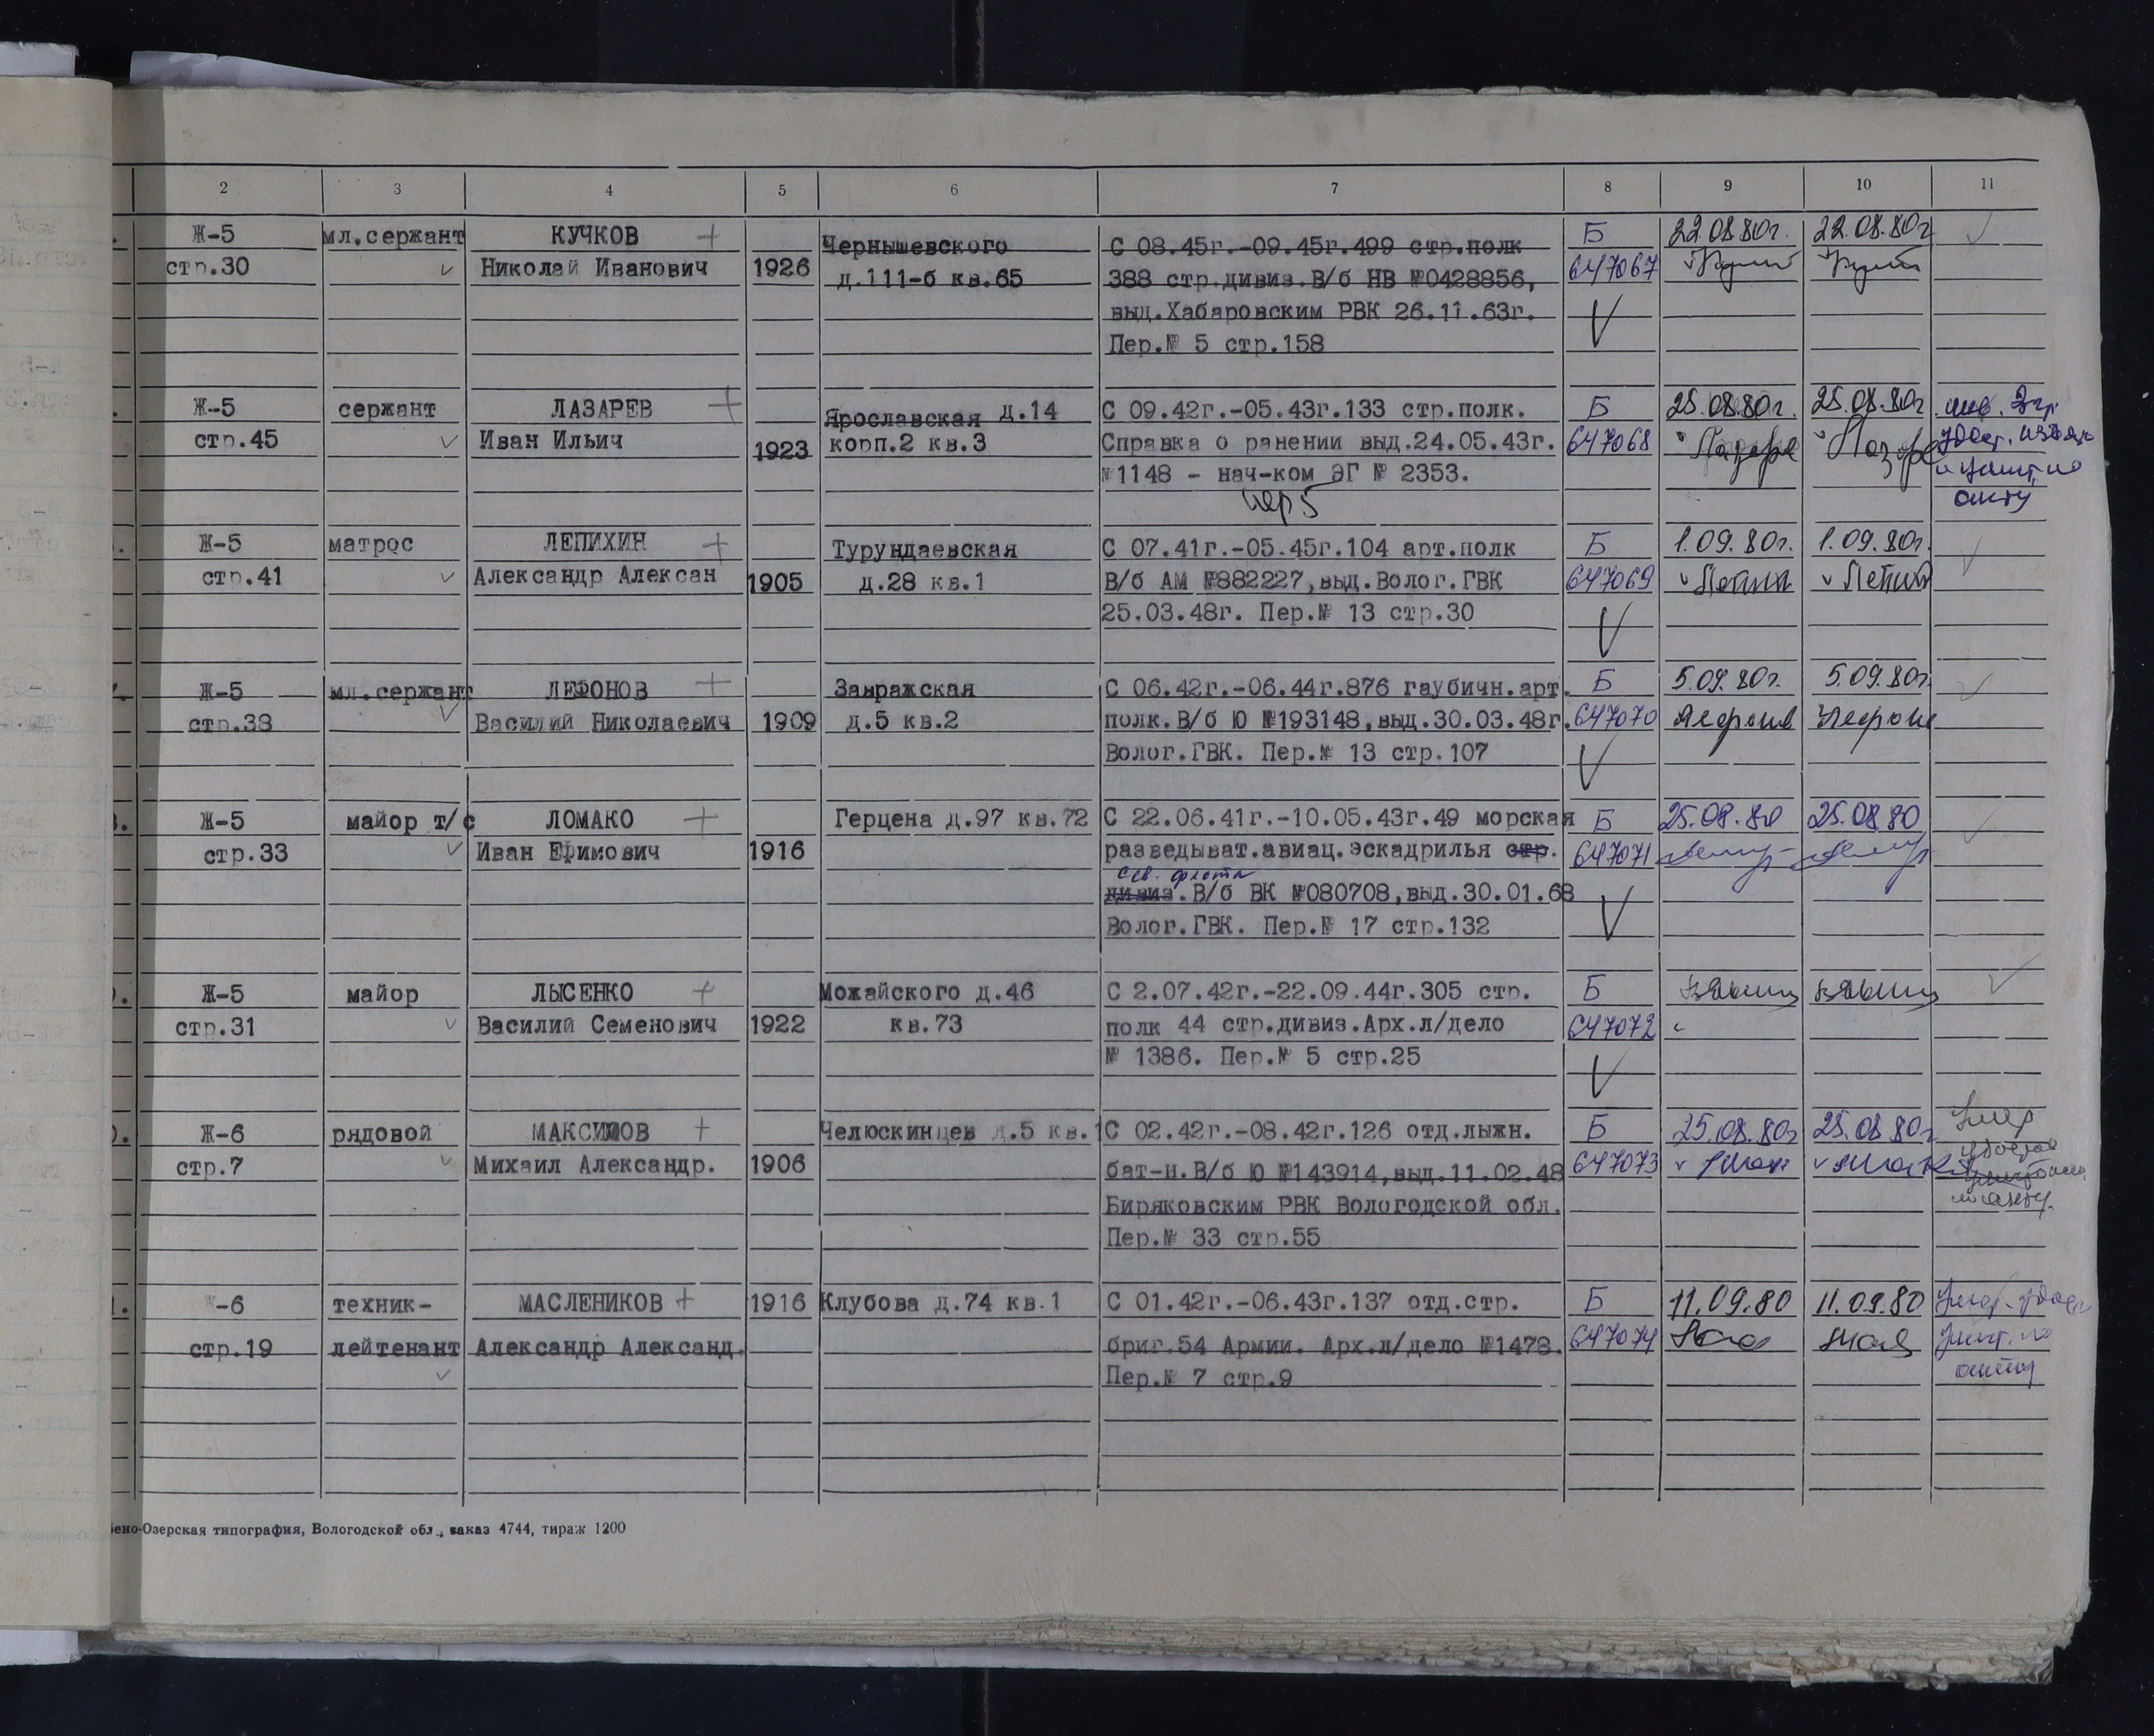 2 3 4 5 6 7 8 9 10 11
Ж-5 мл.сержант КУЧКОВ + Чернышевского С 08.45г.-09.45г.499 стр.полк Б 22.08.80г. 22.08.80г
стр.30 Николай Иванович 1926 д.111-б кв.65 388 стр.дивиз.В/б НВ №0428856, 647067
выд.Хабаровским РВК 26.11.63г.
Пер.№ 5 стр.158
Ж-5 сержант ЛАЗАРЕВ + Ярославская д.14 С 09.42г.-05.43г.133 стр.полк. Б 25.08.80г. 25.08.80г.
стр.45 Иван Ильич 1923 корп.2 кв.3 Справка о ранении выд.24.05.43г. 647068 Лазаре Лазаре
№1148 - нач-ком ЭГ № 2353. и уничт. по
пер 5 акту
Ж-5 матрос ЛЕПИХИН + Турундаевская С 07.41г.-05.45г.104 арт.полк Б 1.09.80г. 1.09.80г.
стр.41 Александр Алексан 1905 д.28 кв.1 В/б АМ №882227,выд.Волог.ГВК 647069
25.03.48г. Пер.№ 13 стр.30
Ж-5 мл.сержант ЛЕФОНОВ + Завражская С 06.42г.-06.44г.876 гаубичн.арт. Б 5.09.80г. 5.09.80г.
стр.38 Василий Николаевич 1909 д.5 кв.2 полк.В/б Ю №193148,выд.30.03.48г. 647070
Волог.ГВК. Пер.№ 13 стр.107
Ж-5 майор т/с ЛОМАКО + Герцена д.97 кв.72 С 22.06.41г.-10.05.43г.49 морская Б 25.08.80 25.08.80
стр.33 Иван Ефимович 1916 разведыват.авиац.эскадрилья стр. 647071
сев. флота
дивиз.В/б ВК №080708,выд.30.01.68
Волог.ГВК. Пер.№ 17 стр.132
Ж-5 майор ЛЫСЕНКО + Можайского д.46 С 2.07.42г.-22.09.44г.305 стр. Б
стр.31 Василий Семенович 1922 кв.73 полк 44 стр.дивиз.Арх.л/дело 647072
№ 1386. Пер.№ 5 стр.25
Ж-6 рядовой МАКСИМОВ + Челюскинцев д.5 кв.1 С 02.42г.-08.42г.126 отд.лыжн. Б 25.08.80г 25.08.80г Умер
стр.7 Михаил Александр. 1906 бат-н.В/б Ю №143914,выд.11.02.48 647073
Биряковским РВК Вологодской обл. по акту.
Пер.№ 33 стр.55
-6 техник- МАСЛЕНИКОВ + 1916 Клубова д.74 кв.1 С 01.42г.-06.43г.137 отд.стр. Б 11.09.80 11.09.80 Умер. удост
стр.19 лейтенант Александр Александ. бриг.54 Армии. Арх.л/дело №1478. 647074 уничт. по
Пер.№ 7 стр.9 акту
ено-Озерская типография, Вологодской обл., заказ 4744, тираж 1200